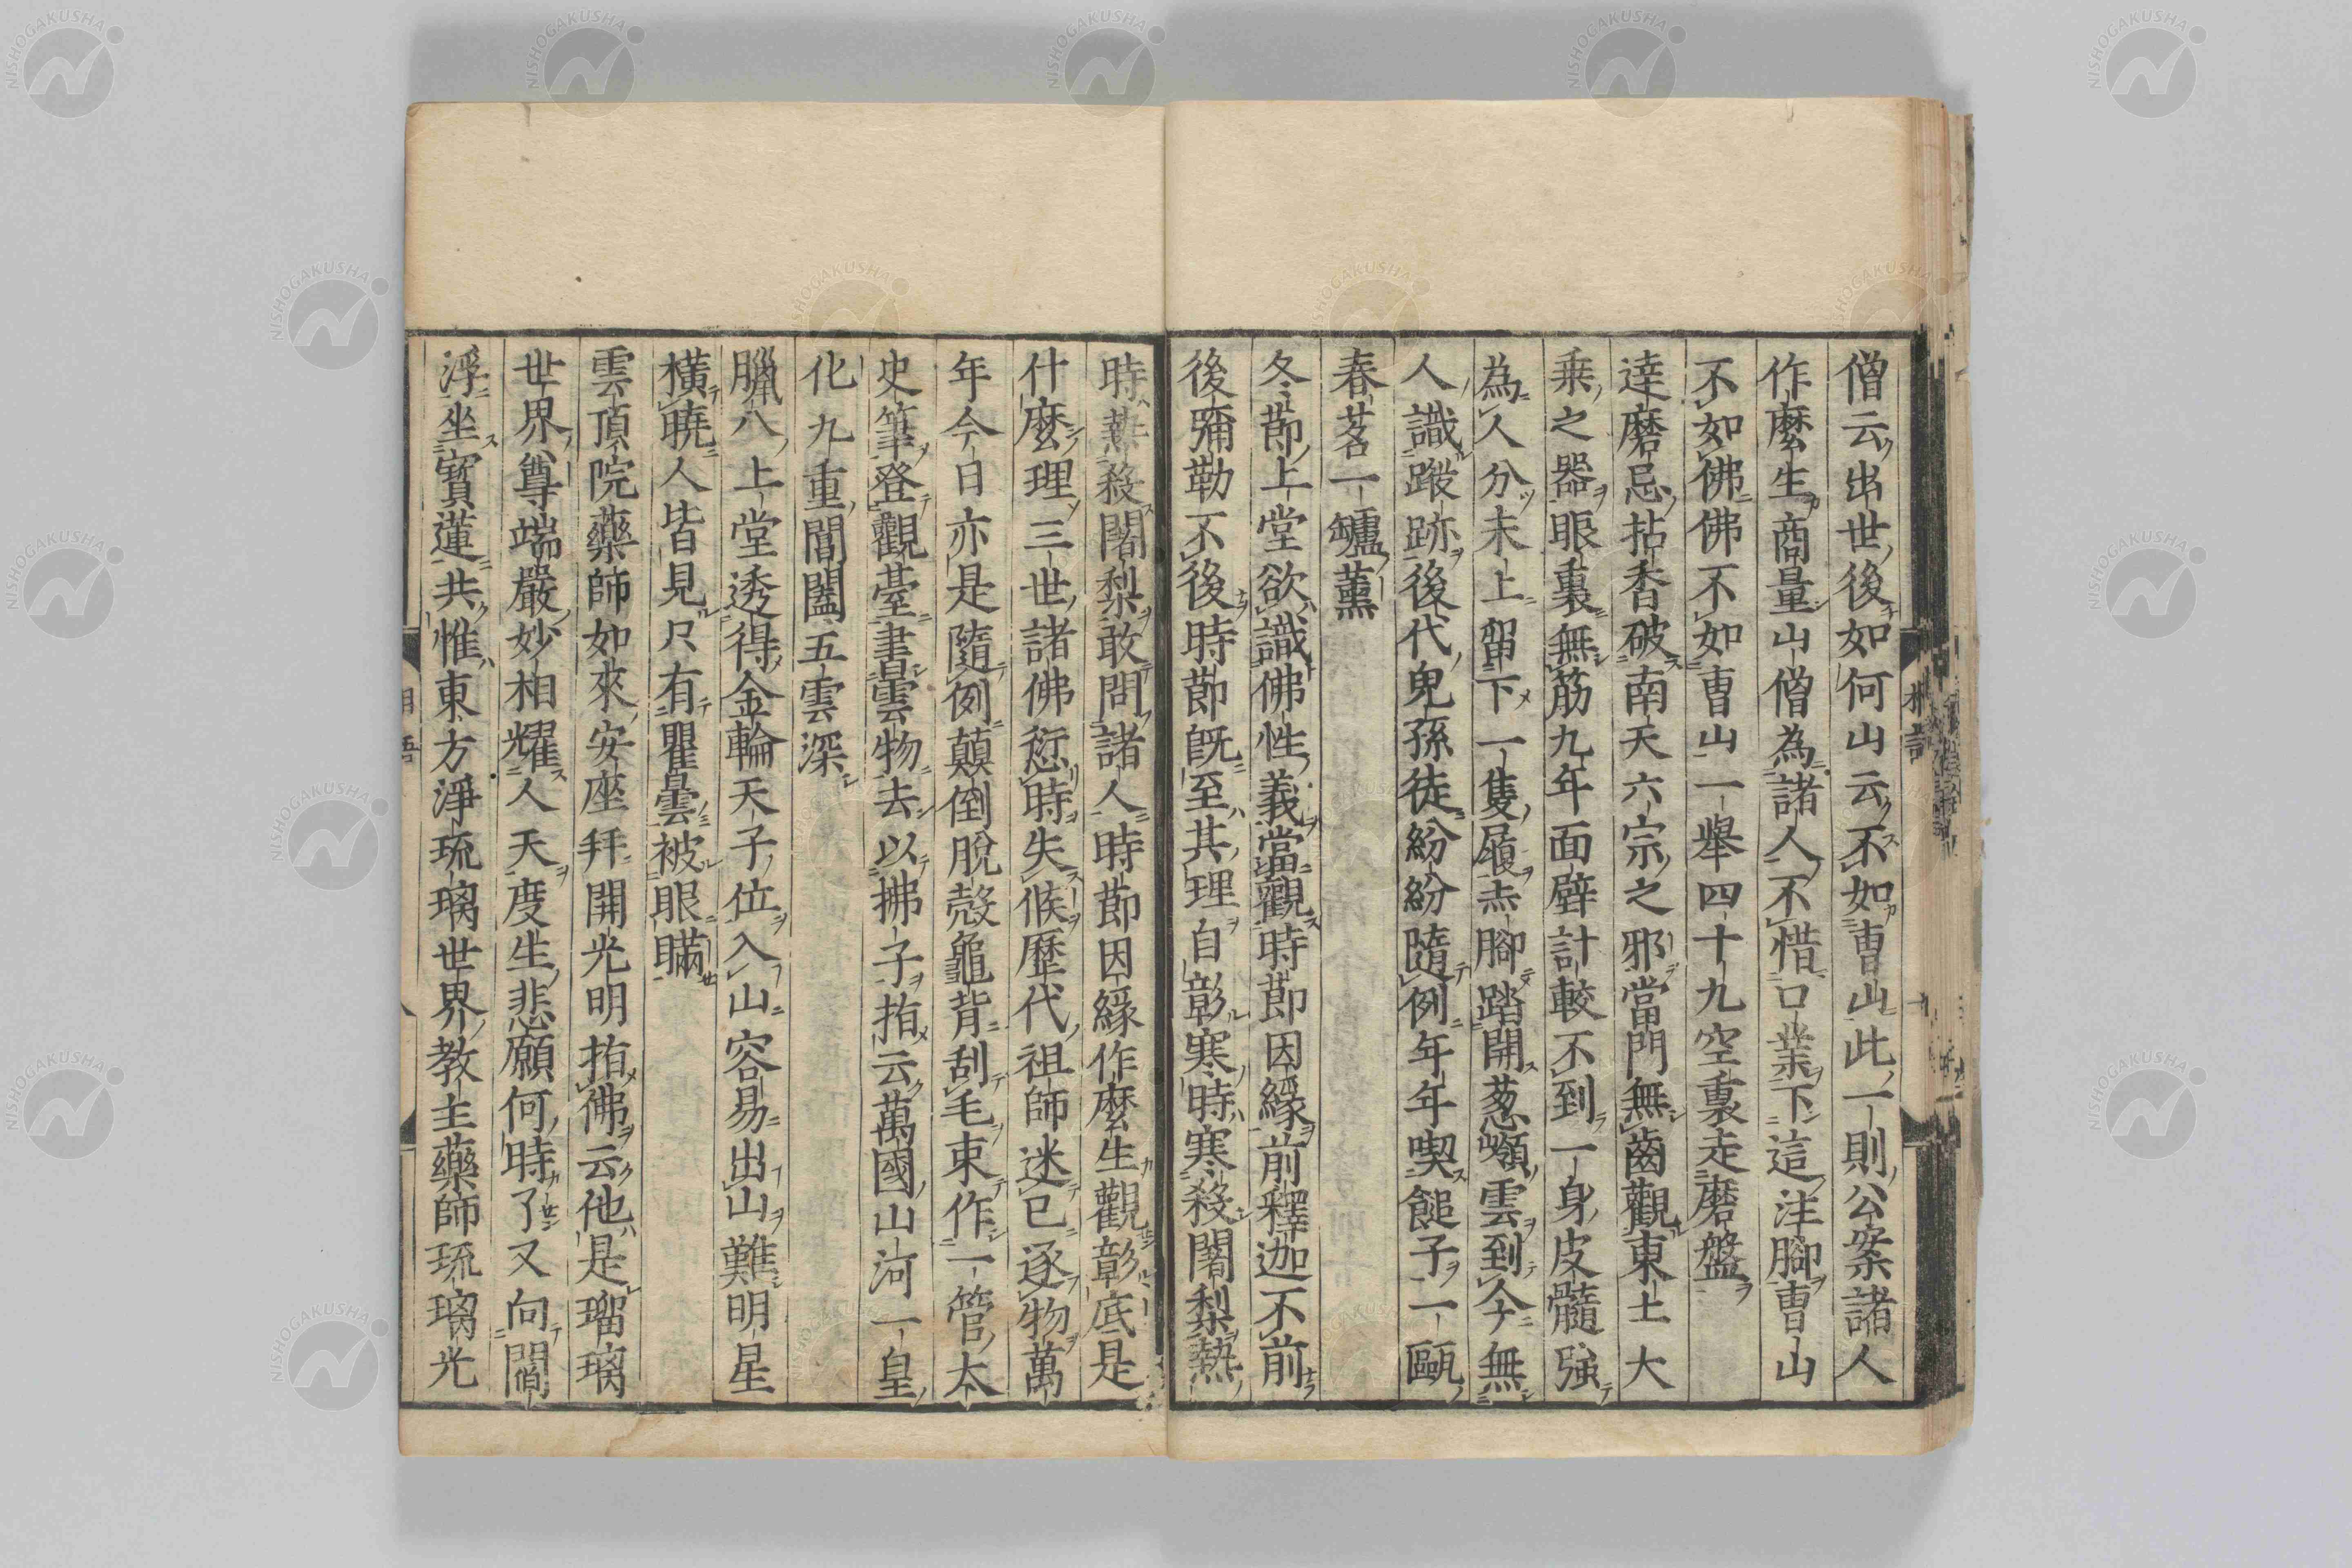 僧云出世後如何山云不如曹山此一則公案諸人
作麼生商量山僧為諸人不惜口業下這注腳曹山
不如佛佛不如曹山一舉四十九空裏走磨盤
達磨忌拈香破南天六宗之邪當門無齒觀東土大
乗之器眼裏無筋九年面壁計較不到一身皮髓强
為人分末上留下一隻履赤腳踏開葱嶺雲到今無
人識蹤跡後代兒孫徒紛紛隨例年年喫餬子一甌
春茗一爐薰
冬節上堂欲識佛性義當觀時節因緣前釋迦不前
後彌勒不後時節既至其理自彰寒時寒殺闍梨熱
時熱殺闍梨敢問諸人時節因緣作麼生觀彰底是
什麼理三世諸佛愆時失候歷代祖師迷已逐物萬
年今日亦是隨例顛倒脫殻龜背刮毛束作一管太
史筆登觀臺書雲物去以拂子指云萬國山河一皇
化九重閶闔五雲深
臘八上堂透得金輪天子位入山容易出山難明星
橫曉人皆見只有瞿曇被眼瞞
雲頂院藥師如來安座拜開光明指佛云他是瑠璃
世界尊端嚴妙相耀人天度生悲願何時了又向閻
浮坐寶蓮共惟東方淨琉璃世界教主藥師琉璃光
NISHOGAKUSHA